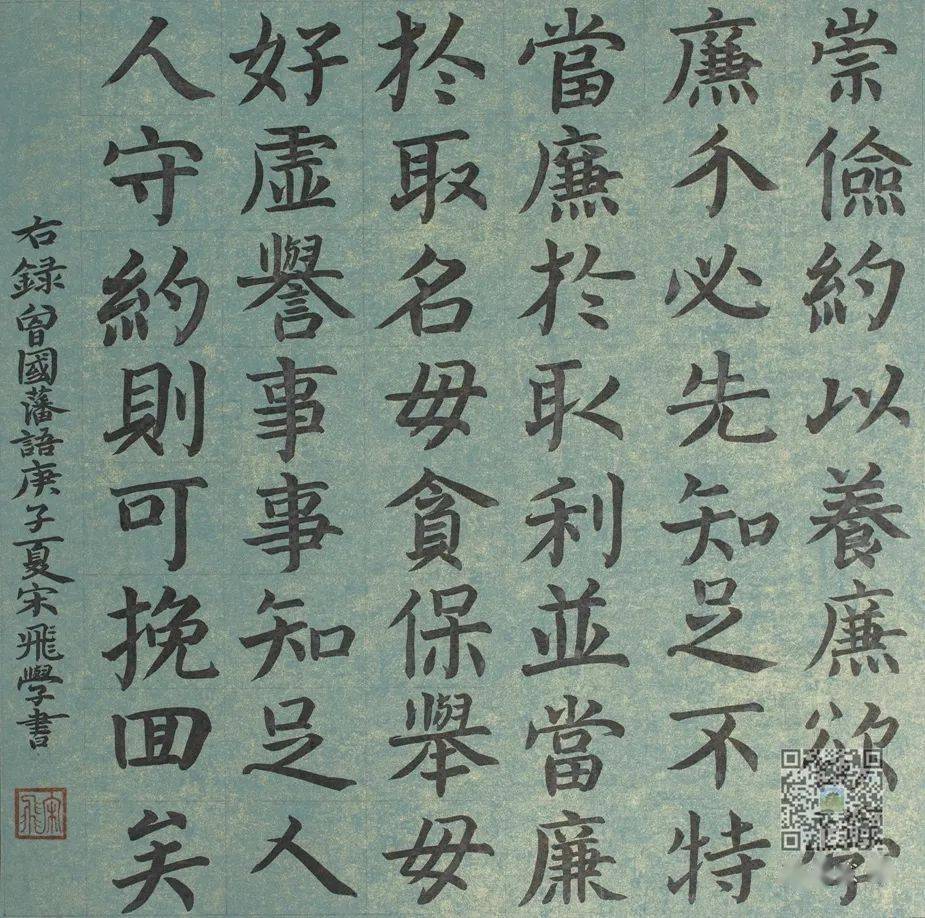 崇儉約以養廉欲
廉介必先知足不特
當廉於取利並當廉
於取名毋貪保舉毋
好虚譽事事知足人
人守約則可挽囬矣
右録曾國藩語庚子夏宋飛學書
宋飛